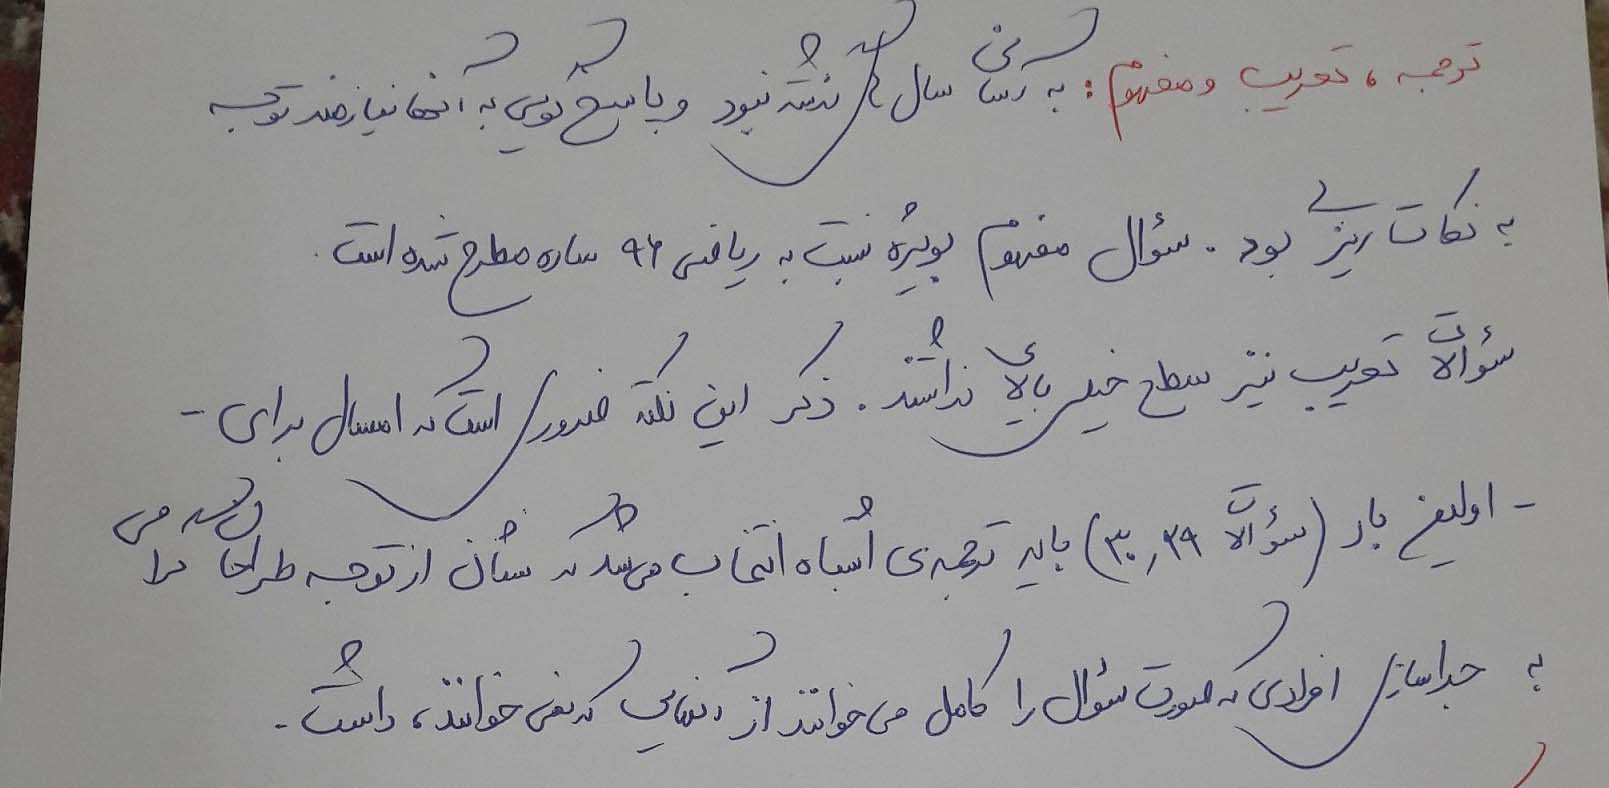 ترجمه، تعریب و مفهوم: به آسانی سال گذشته نبود و پاسخ گویی به آنها نیازمند توجه
به نکات ریزی بود. سؤال مفهوم بویژه نسبت به ریاضی ۹۶ ساده مطرح شده است.
سؤالات تعریب نیز سطح خیلی بالای نداشتند. ذکر این نکته ضروری است که امسال برای -
- اولین بار (سؤالات ۲۹ و ۳۰) باید ترجمه‌ی اشتباه انتخاب می‌شد که نشان از توجه طراحان
به جداسازی افرادی که صورت سؤال را کامل می‌خوانند از آنهایی که نمی‌خوانند، داشت.